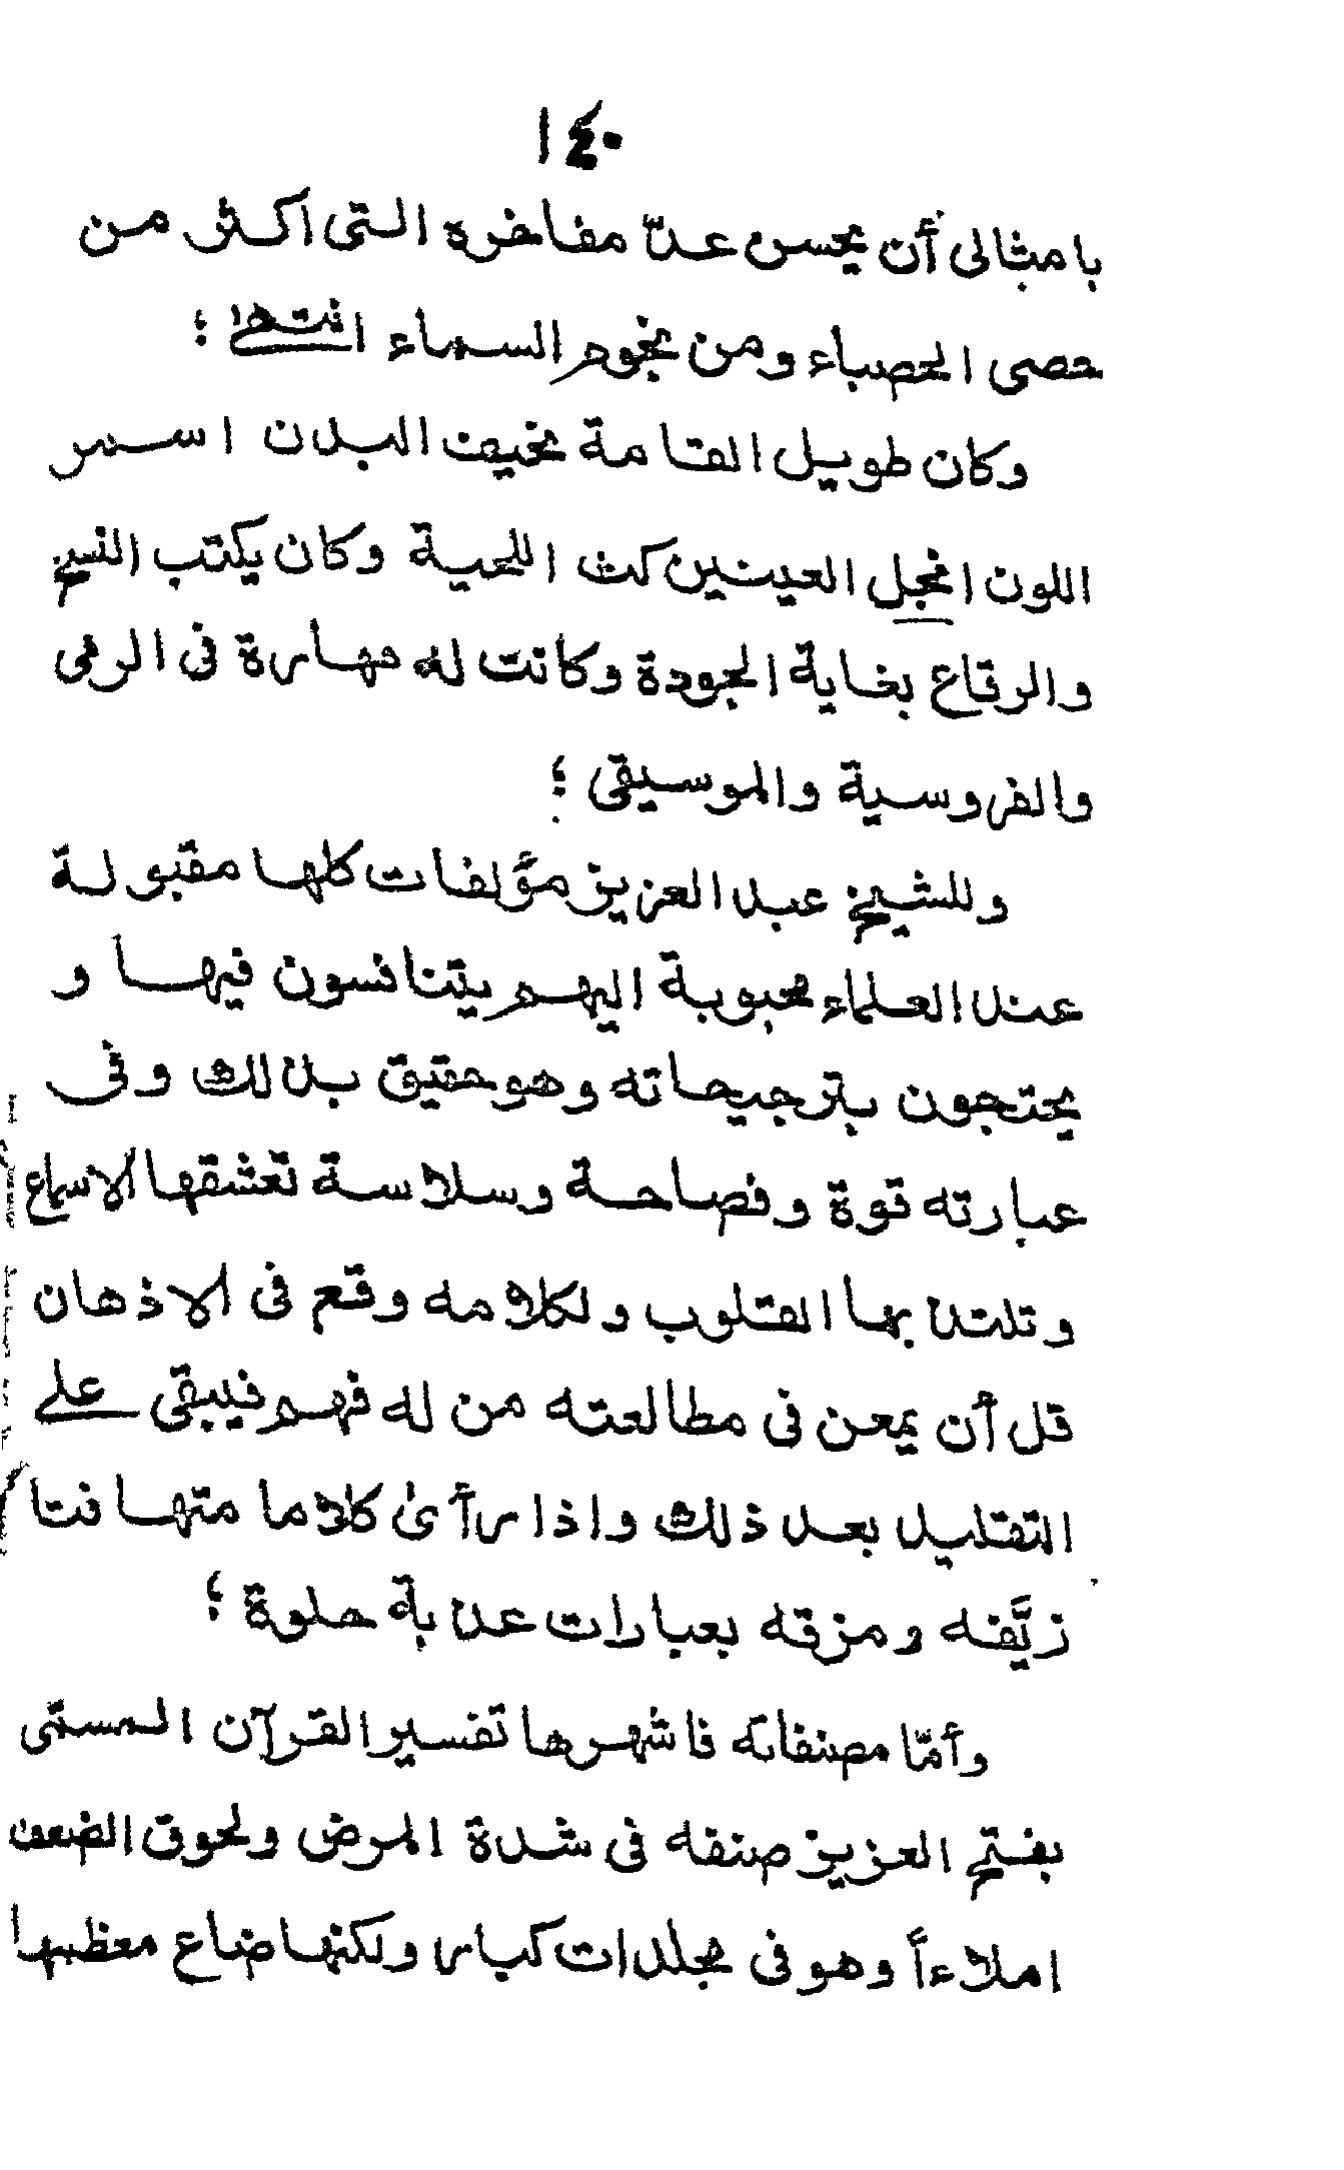 ١٤٠
بامثالى أن يحسن عدّ مفاخره التى اكثر من
حصى الحصباء ومن نجوم السماء انتهى ؛
وكان طويل القامة نحيف البدن اسمر
اللون انجل العينين كث اللحية وكان يكتب النسخ
والرقاع بغاية الجودة وكانت له مهارة فى الرمى
والفروسية والموسيقى ؛
وللشيخ عبد العزيز مؤلفات كلها مقبولة
عند العلماء محبوبة اليهم يتنافسون فيها و
يحتجون بترجيحاته وهو حقيق بذلك وفى
عبارته قوة وفصاحة وسلاسة تعشقها الاسماع
وتلتذ بها القلوب ولكلامه وقع فى الاذهان
قل أن يمعن فى مطالعته من له فهم فيبقى على
التقليد بعد ذلك واذا رأى كلاما متهافتا
زيَّفه ومزقه بعبارات عذبة حلوة ؛
وأمّا مصنفاته فاشهرها تفسير القرآن المسمّى
بفتح العزيز صنفه فى شدة المرض ولحوق الضعف
املاءاً وهو فى مجلدات كبار ولكنها ضاع معظمها